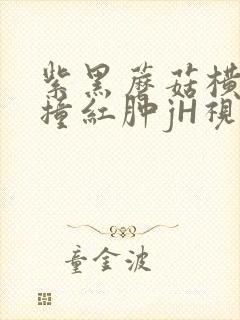 紫黑蘑菇横
撞红肿jH视
童金波